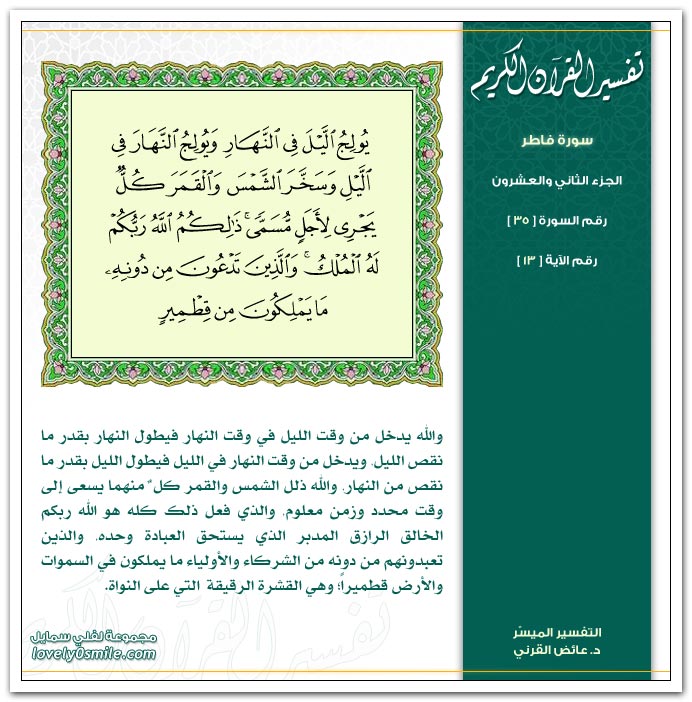 تفسير القرآن الكريم
سورة فاطر
الجزء الثاني والعشرون
رقم السورة [ ٣٥ ]
رقم الآية [ ١٣ ]
يُولِجُ ٱلَّيْلَ فِى ٱلنَّهَارِ وَيُولِجُ ٱلنَّهَارَ فِى
ٱلَّيْلِ وَسَخَّرَ ٱلشَّمْسَ وَٱلْقَمَرَ كُلٌّ
يَجْرِى لِأَجَلٍ مُّسَمًّى ۚ ذَٰلِكُمُ ٱللَّهُ رَبُّكُمْ
لَهُ ٱلْمُلْكُ ۚ وَٱلَّذِينَ تَدْعُونَ مِن دُونِهِۦ
مَا يَمْلِكُونَ مِن قِطْمِيرٍ
والله يدخل من وقت الليل في وقت النهار فيطول النهار بقدر ما
نقص الليل، ويدخل من وقت النهار في الليل فيطول الليل بقدر ما
نقص من النهار، والله ذلل الشمس والقمر كلٌ منهما يسعى إلى
وقت محدد وزمن معلوم، والذي فعل ذلك كله هو الله ربكم
الخالق الرازق المدبر الذي يستحق العبادة وحده، والذين
تعبدونهم من دونه من الشركاء والأولياء ما يملكون في السموات
والأرض قطميراً؛ وهي القشرة الرقيقة التي على النواة.
التفسير الميسّر
د. عائض القرني
مجموعة لفلي سمايل
lovely0smile.com
تفسير القرآن الكريم